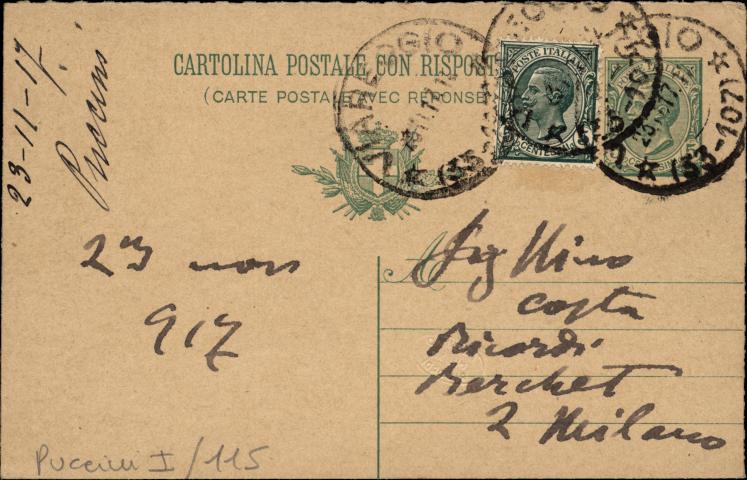 CARTOLINA POSTALE CON RISPOST
(CARTE POSTALE AVEC RÉPONSE
VIAREGGIO
(33-107)
POSTE ITALIANE
CENTESIMI
23-11-17
Puccini
23 nov
917
A Sig Nino
Costa
Ricordi
Berchet
2 Milano
Puccini I/115